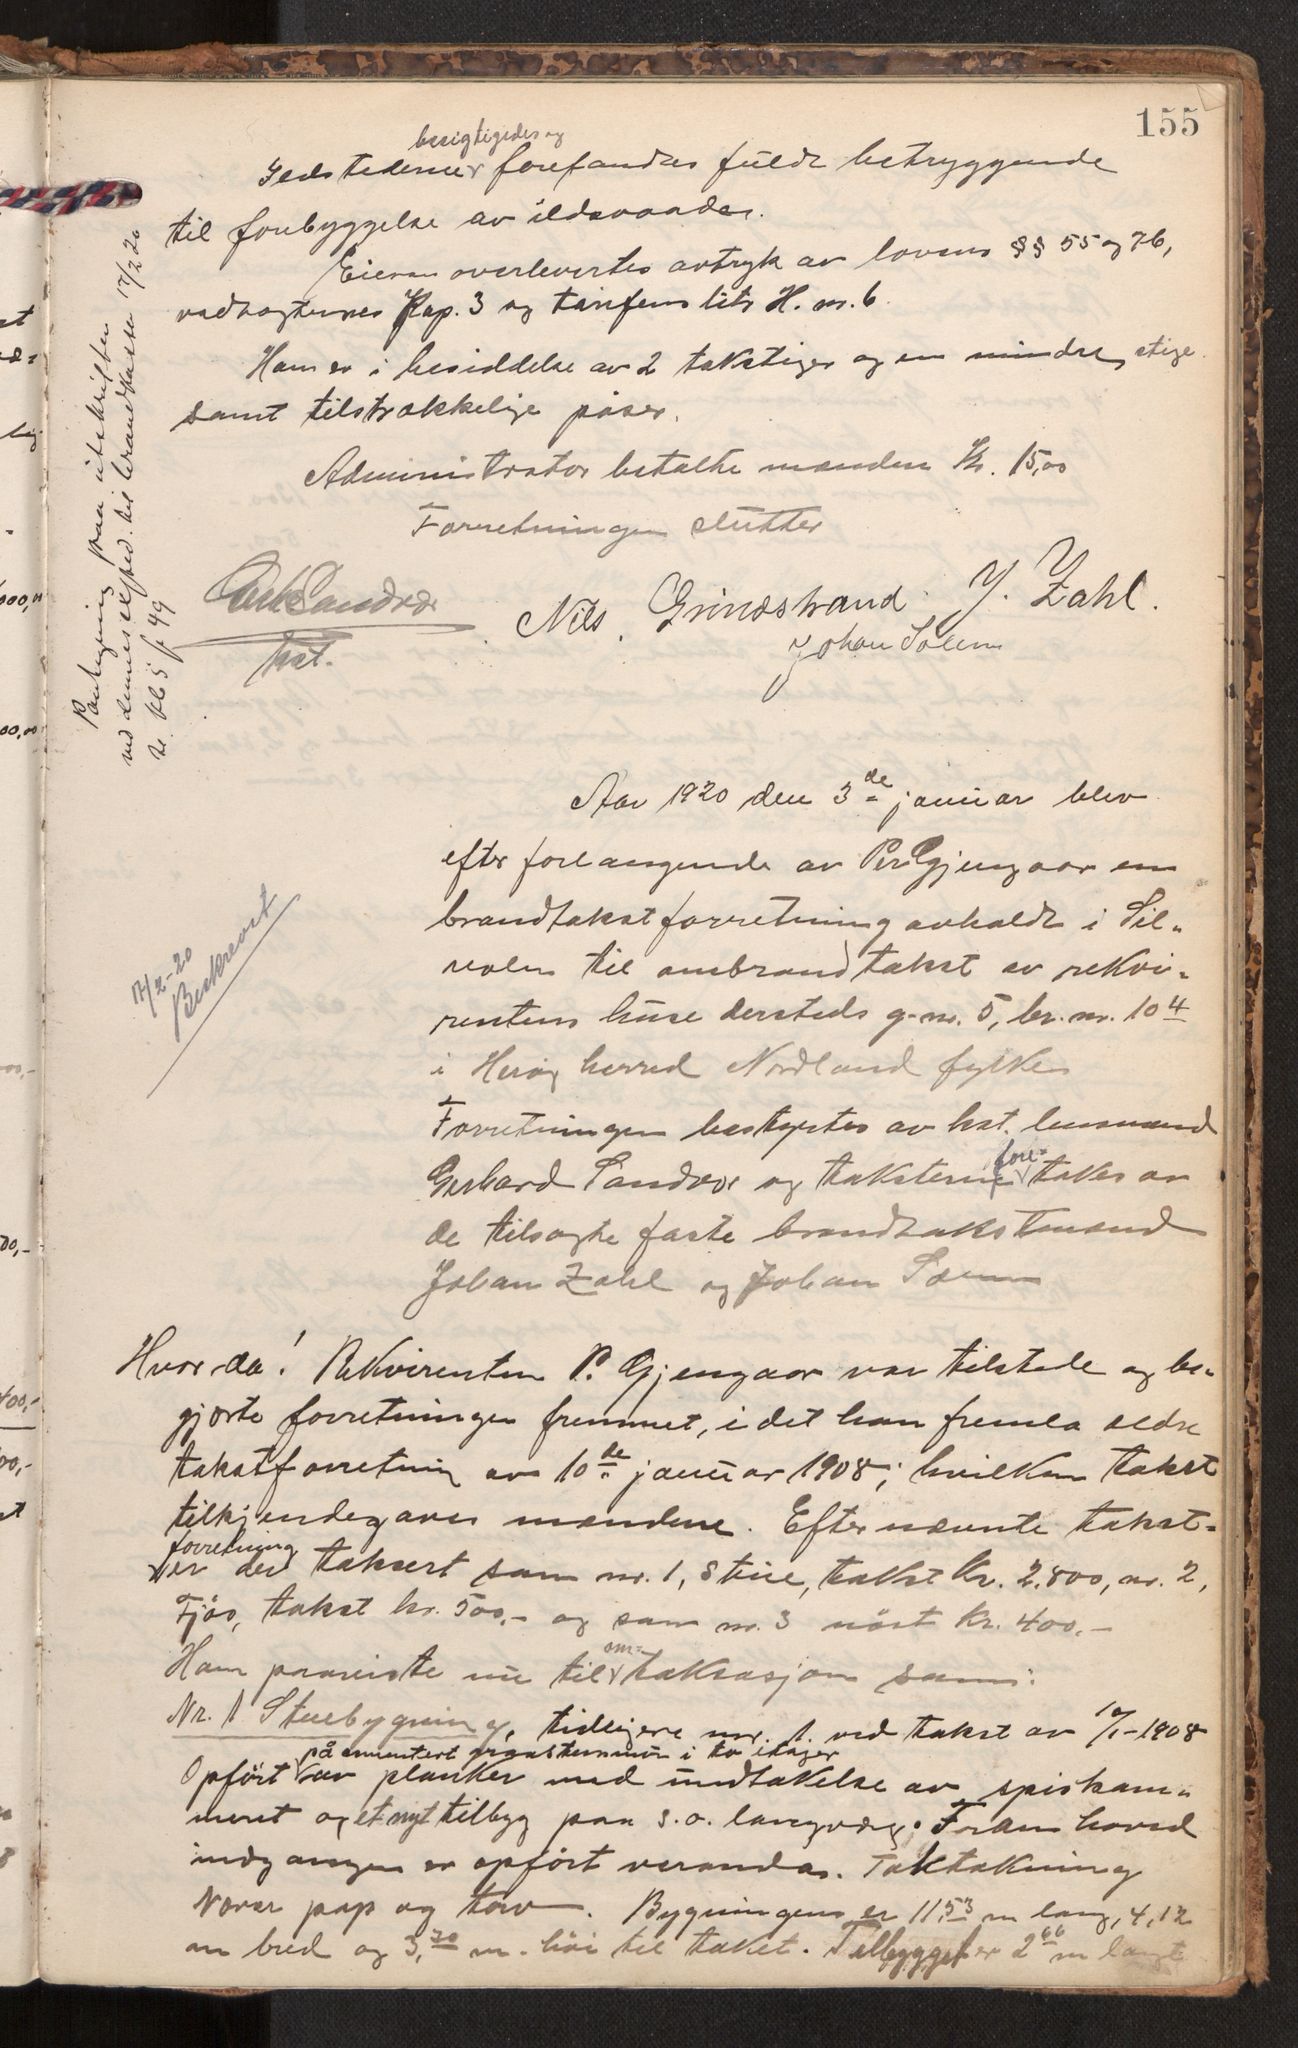 155
besigtigedes og
Ildstederne forefandtes fuldt betryggende
til forebyggelse av ildsvaader.
Eieren overlevertes avtryk av lovens §§ 55 og 76,
vedtægternes Kap. 3 og tariffens litr H. m. 6.
Han er i besiddelse av 2 takstiger og en mindre stige
samt tilstrækkelige pøser.
Administrator betalte mændene Kr. 15,00
Forretningen slutter
Sandvær
hst.
Nils Grindstrand J. Zahl.
Johan Solem
Paategning paa utskriften
ved dennes exped. til brandkassen 17/2 20
Aar 1920 den 3de januar blev
efter forlangende av Per Gjengaar en
brandtakstforretning avholdt i Sil-
valen til ombrandtakst av rekvi-
rentens huse dersteds g. nr. 5, br. nr. 104
i Herøy herred Nordland fylke
Forretningen bestyrtes av hst. lensmand
Gerhard Sandvær og taksterne fore-
takes av
de tilsagte faste brandtakstmænd
Johan Zahl og Johan Solem
17/2-20
Beskrevet
Hvor da! Rekvirenten P. Gjengaar var tilstede og be-
gjærte forretningen fremmet, i det han fremla ældre
takstforretning av 10de januar 1908; hvilken takst
tilkjendegaves mændene. Efter nævnte takst-
forretning
er der taksert som nr. 1, Stue, takst Kr. 2.800, nr. 2,
Fjøs, takst kr. 500,- og som nr. 3 nøst Kr. 400.-
Han paaviste nu til om-
taksasjon som:
Nr. 1 Stuebygning, tidligere nr. 1. ved takst av 10/1-1908
på cementert graastensmur i to etager
Opført av planker med undtakelse av spiskam-
meret og et nyt tilbyg paa s.o. langvæg. Foran hoved
indgangen er opført veranda. Taktækning
Næver pap og torv. Bygningen er 11,53 m lang, 4,12
m bred og 3,30 m. høi til taket. Tilbygget er 2,66 m langt